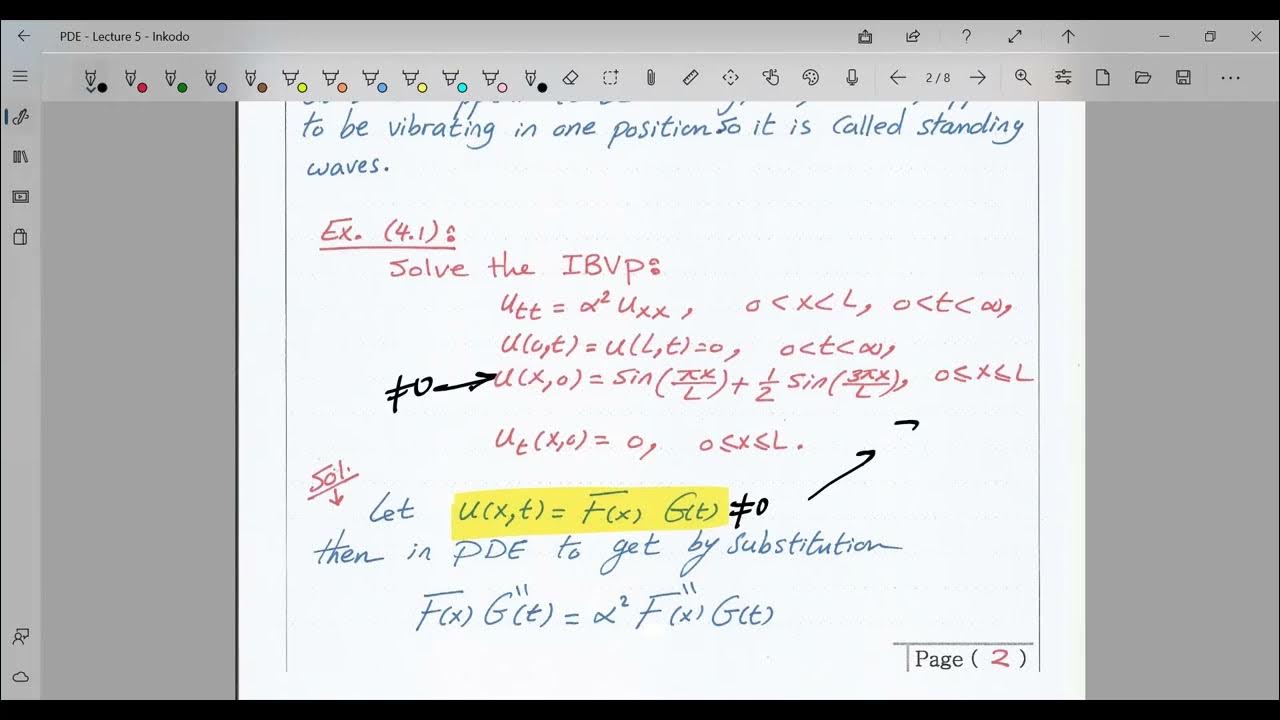 PDE - Lecture 5 - Inkodo
2/8
to be vibrating in one position so it is called standing
waves.
Ex. (4.1):
Solve the IBVP:
u_tt = α² u_xx, 0<x<L, 0<t<∞,
u(0,t) = u(L,t) = 0, 0<t<∞,
≠0 → u(x,0) = sin(πx/L) + 1/2 sin(3πx/L), 0≤x≤L
u_t(x,0) = 0, 0≤x≤L.
Sol.
Let u(x,t) = F(x) G(t) ≠0
then in PDE to get by substitution
F(x) G''(t) = α² F''(x) G(t)
Page ( 2 )